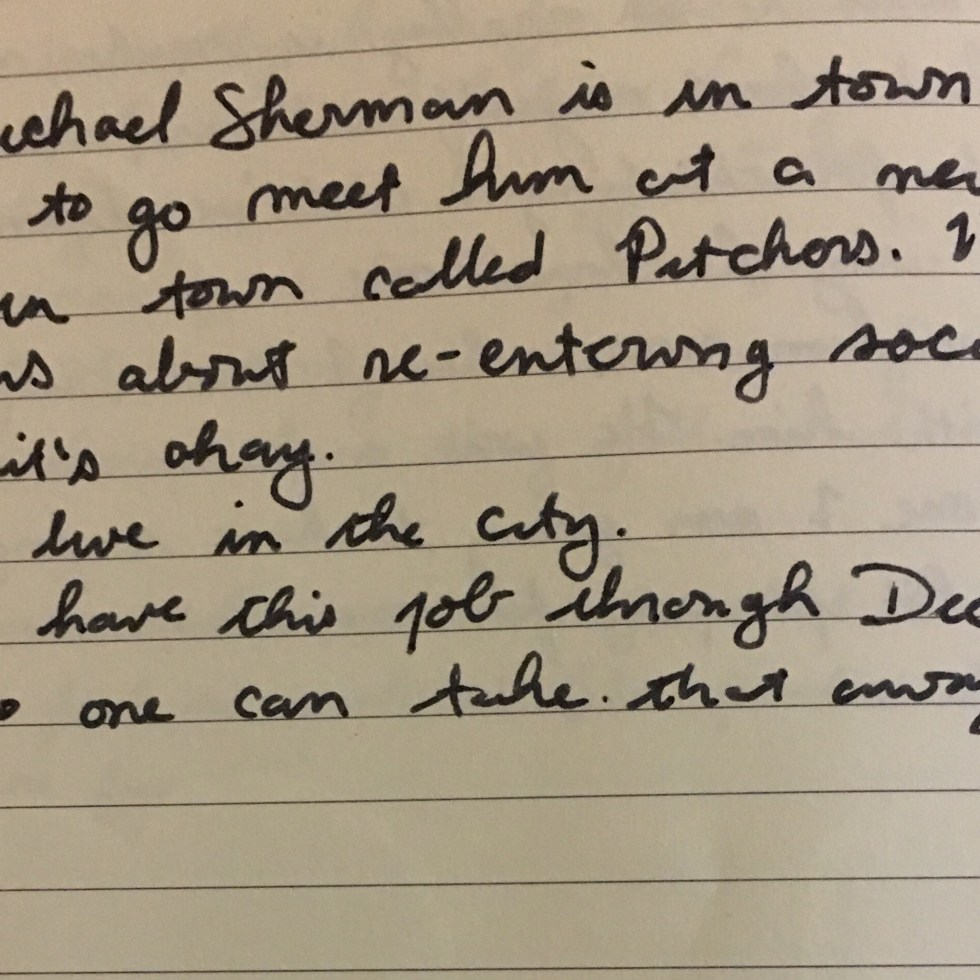 ichael Sherman is in town
to go meet him at a ne
in town called Pitchers. I
ns about re-entering soc
it's okay.
live in the city.
have this job through Dec
o one can take. that away